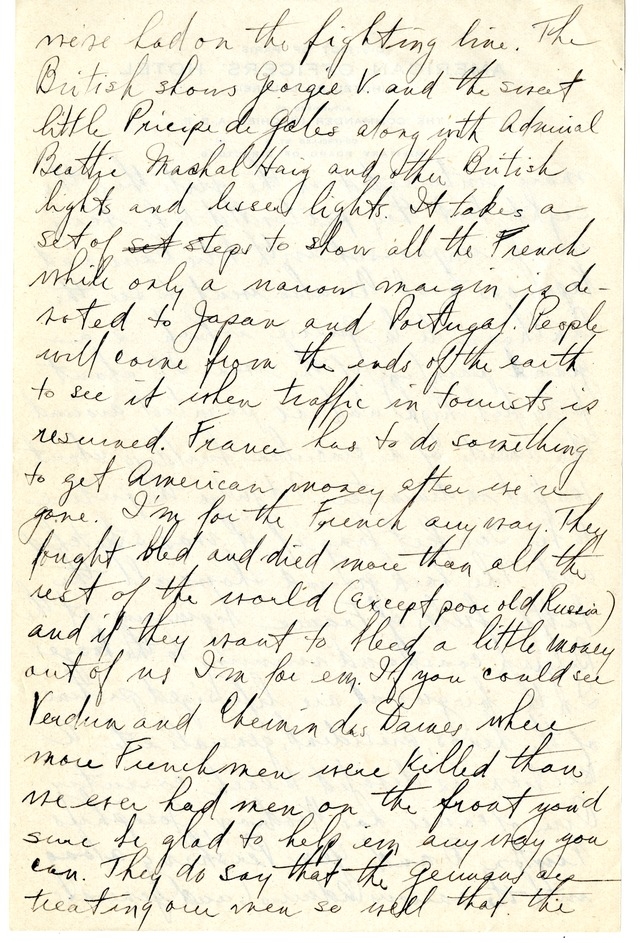 we've had on the fighting line. The
British shows Georgee V and the sweet
little Pricipe de Gales along with Admiral
Beattie Mashal Haig and other British
lights and lesser lights. It takes a
set of set steps to show all the French
while only a narrow margin is de-
voted to Japan and Portugal. People
will come from the ends of the earth
to see it when traffic in tourists is
resumed. France has to do something
to get American money after we're
gone. I'm for the French anyway. They
fought bled and died more than all the
rest of the world (except poor old Russia)
and if they want to bleed a little money
out of us I'm for em. If you could see
Verdun and Chemin des Dames where
more Frenchmen were killed than
we ever had men on the front you'd
sure be glad to help em any way you
can. They do say that the Germans are
treating our men so well that the